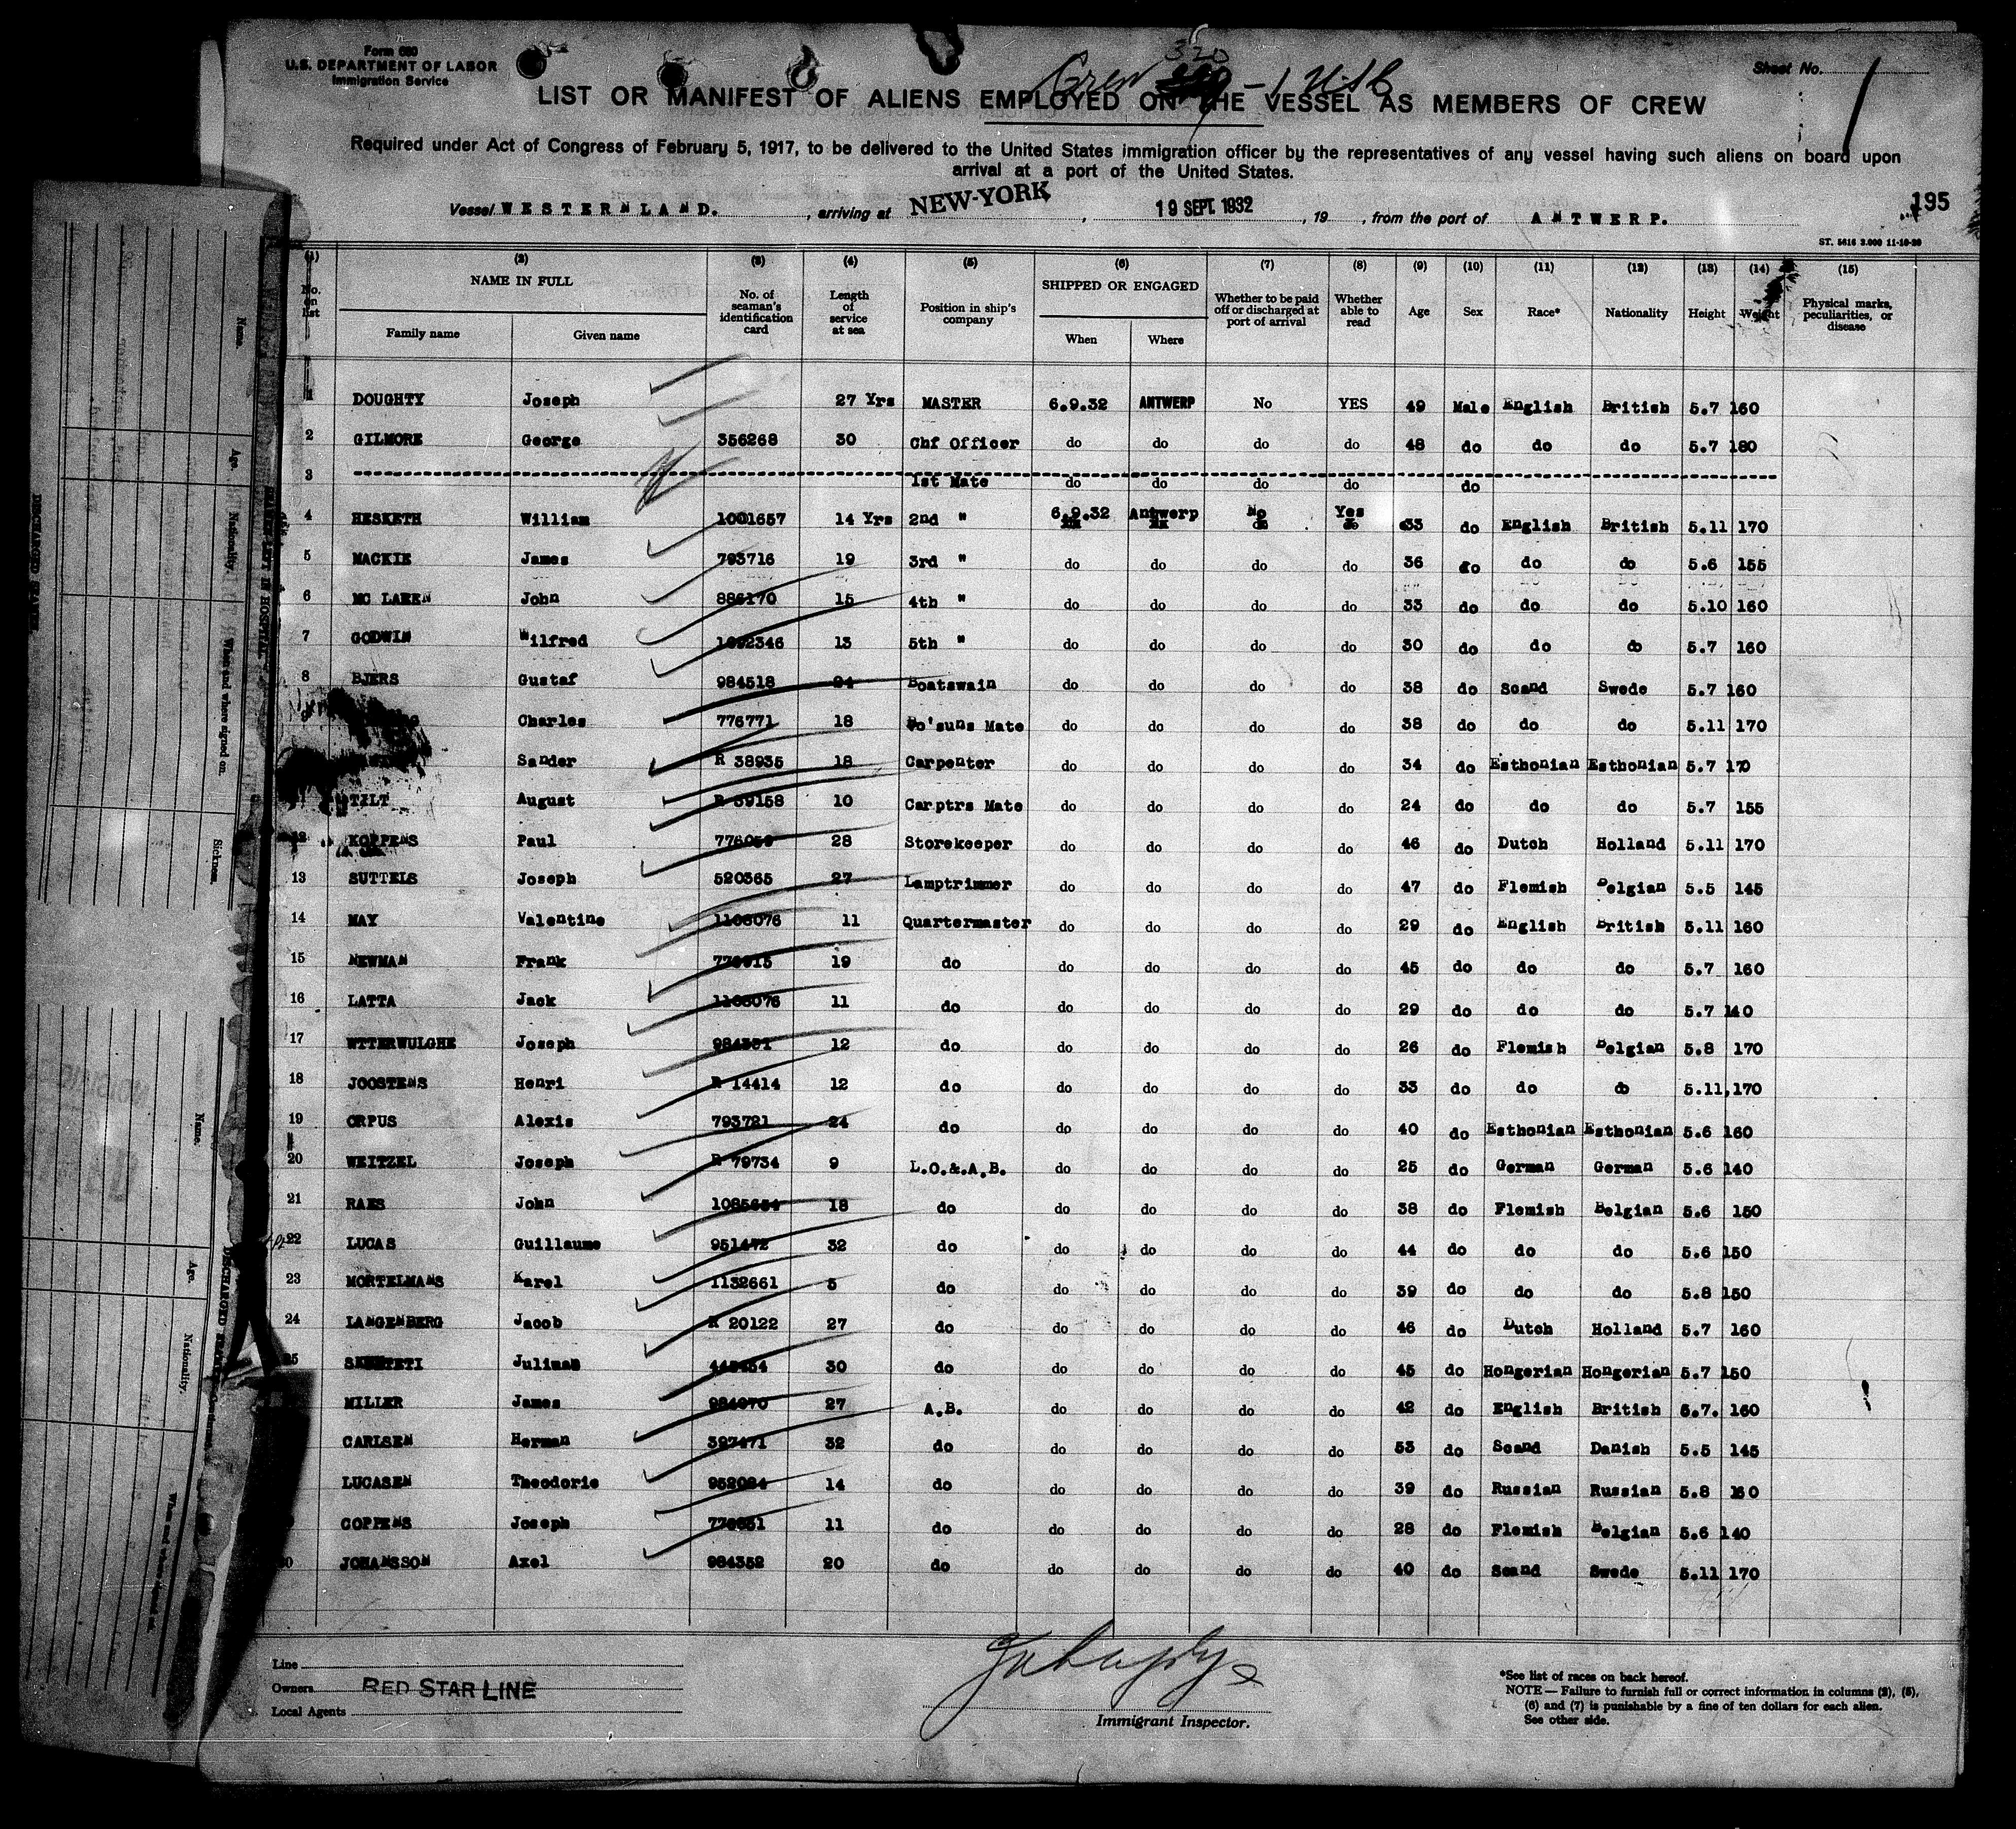 Form 680
U.S. DEPARTMENT OF LABOR
Immigration Service
Crew 320 - 1 USC
Sheet No. 1
LIST OR MANIFEST OF ALIENS EMPLOYED ON THE VESSEL AS MEMBERS OF CREW
Required under Act of Congress of February 5, 1917, to be delivered to the United States immigration officer by the representatives of any vessel having such aliens on board upon
arrival at a port of the United States.
Vessel WESTERNLAND. , arriving at NEW-YORK , 19 SEPT. 1932 , 19 , from the port of ANTWERP.
195
ST. 5616 3.000 11-10-30
(1) (2) (3) (4) (5) (6) (7) (8) (9) (10) (11) (12) (13) (14) (15)
No. on list NAME IN FULL Family name Given name No. of seaman's identification card Length of service at sea Position in ship's company SHIPPED OR ENGAGED When Where Whether to be paid off or discharged at port of arrival Whether able to read Age Sex Race* Nationality Height Weight Physical marks, peculiarities, or disease
1 DOUGHTY Joseph 27 Yrs MASTER 6.9.32 ANTWERP No YES 49 Male English British 5.7 160
2 GILMORE George 356268 30 Chf Officer do do do do 48 do do do 5.7 180
3 1st Mate do do do do do
4 HESKETH William 1001657 14 Yrs 2nd " 6.9.32 Antwerp No Yes 33 do English British 5.11 170
5 MACKIE James 793716 19 3rd " do do do do 36 do do do 5.6 155
6 MC LAREN John 886170 15 4th " do do do do 33 do do do 5.10 160
7 GODWIN Wilfred 1092346 13 5th " do do do do 30 do do do 5.7 160
8 BJERS Gustaf 984518 24 Boatswain do do do do 38 do Scand Swede 5.7 160
9 Charles 776771 18 Bo'suns Mate do do do do 38 do do do 5.11 170
Sander R 38935 18 Carpenter do do do do 34 do Esthonian Esthonian 5.7 170
TILT August R 39158 10 Carptrs Mate do do do do 24 do do do 5.7 155
12 KOPPENS Paul 776059 28 Storekeeper do do do do 46 do Dutch Holland 5.11 170
13 SUTTELS Joseph 520365 27 Lamptrimmer do do do do 47 do Flemish Belgian 5.5 145
14 MAY Valentine 1108076 11 Quartermaster do do do do 29 do English British 5.11 160
15 NEWMAN Frank 19 do do do do do 45 do do do 5.7 160
16 LATTA Jack 1108076 11 do do do do do 29 do do do 5.7 140
17 WTTERWULGHE Joseph 984351 12 do do do do do 26 do Flemish Belgian 5.8 170
18 JOOSTENS Henri R 14414 12 do do do do do 33 do do do 5.11 170
19 ORPUS Alexis 793721 24 do do do do do 40 do Esthonian Esthonian 5.6 160
20 WEITZEL Joseph R 79734 9 L.O.&.A.B. do do do do 25 do German German 5.6 140
21 RAES John 1085654 18 do do do do do 38 do Flemish Belgian 5.6 150
22 LUCAS Guillaume 951472 32 do do do do do 44 do do do 5.6 150
23 MORTELMANS Karel 1132661 5 do do do do do 39 do do do 5.8 150
24 LANGENBERG Jacob R 20122 27 do do do do do 46 do Dutch Holland 5.7 160
25 30 do do do do do 45 do Hongerian Hongerian 5.7 150
MILLER James 984070 27 A.B. do do do do 42 do English British 5.7. 160
CARLSEN Herman 397471 32 do do do do do 53 do Scand Danish 5.5 145
LUCASEN Theodorie 952084 14 do do do do do 39 do Russian Russian 5.8 160
COPPENS Joseph 11 do do do do do 28 do Flemish Belgian 5.6 140
30 JOHANSSON Axel 984352 20 do do do do do 40 do Scand Swede 5.11 170
Line
Owners RED STAR LINE
Local Agents
Immigrant Inspector.
*See list of races on back hereof.
NOTE — Failure to furnish full or correct information in columns (2), (5),
(6) and (7) is punishable by a fine of ten dollars for each alien.
See other side.
Name.
Age.
Nationality.
When and where signed on.
Sickness.
Name.
Age.
Nationality.
When and where signed on.